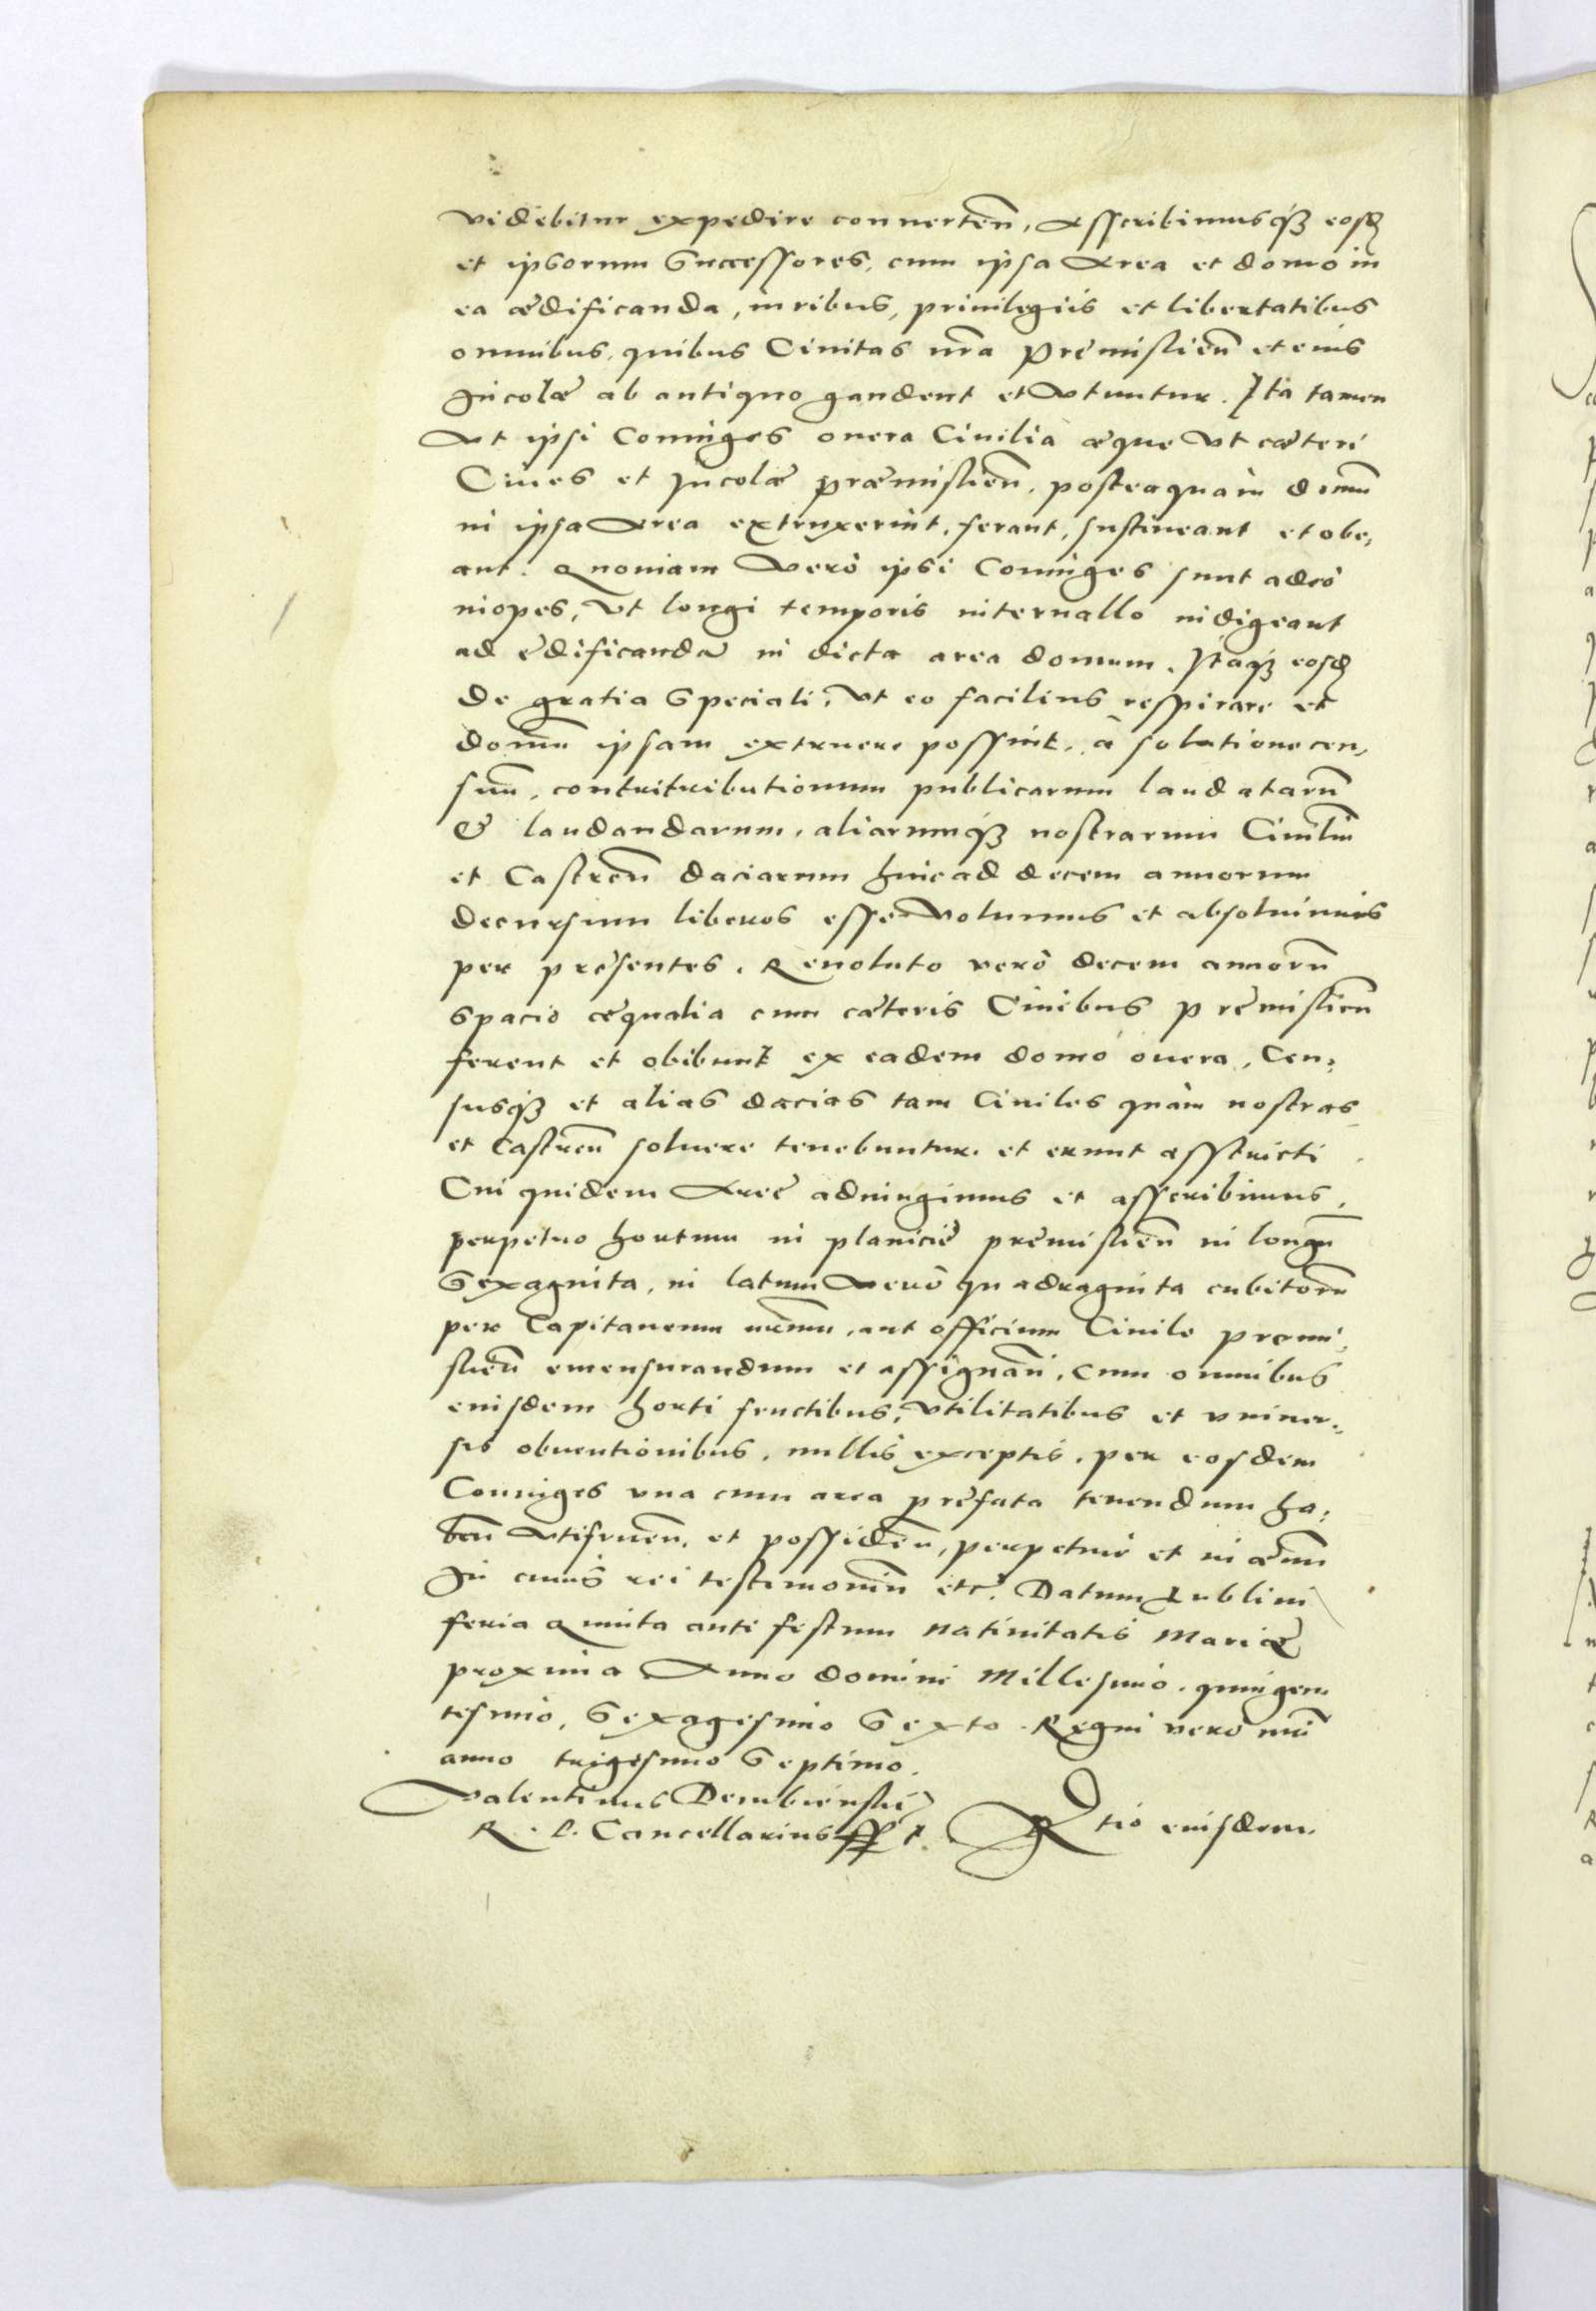 videbitur expedire conuerten̄, Asscribimusq3 eosd
et ipsorum Successores, cum ipsa Area et domo in
ea ædificanda, iuribus, priuilegiis et libertatibus
omnibus, quibus Ciuitas nr̄a Premislien̄ et eius
Incolæ ab antiquo gaudent et Vtuntur. Ita tamen
Vt ipsi Coniuges onera Ciuilia æque Vt cæteri
Ciues et Incolæ præmislien̄, posteaquam domū
in ipsa Area extruxerint, ferant, sustineant et obe,
ant. Quoniam Verò ipsi Coniuges sunt adeò
inopes, Vt longi temporis interuallo indigeant
ad edificandã in dicta area domum. Itaq3 eosd
de gratia Speciali, Vt eo facilius respirare et
domū ipsam extruere possint, à solutione cen,
suū, contritributionum publicarum laudatarū
& laudandarum, aliarumq3 nostrarum Ciuiliū
et Castren̄ daciarum hinc ad decem annorum
decursum liberos esse Volumus et absoluimus
per presentes. Reuoluto verò decem annorū
spacio æqualia cum cæteris Ciuibus premislien̄
ferent et obibunt ex eadem domo onera, Cen,
susq3 et alias dacias tam Ciuiles quàm nostras
et Castren̄ soluere tenebuntur et erunt asstricti
Cui quidem Aree adiungimus et asscribimus
perpetuo hortum in planicie premislien̄ in longū
Sexaginta, in latum Verò quadraginta cubitorū
per Capitaneum nr̄um, aut officium Ciuile premi,
slien̄ emensurandum et assignan̄, Cum omnibus
eiusdem horti fructibus, Vtilitatibus et vniuer,
sis obuentionibus, nullis exceptis, per eosdem
Coniuges vna cum area prefata tenendum ha,
ben̄ Vtifruen̄, et possiden̄, perpetuo et in æuū
In cuius rei testimoniū etc. Datum Lublini
feria Quinta ante festum Natiuitatis Mariæ
proxima Anno domini Millesimo, quingen
tesimo, Sexagesimo Sexto. Regni verò nr̄i
anno trigesimo Septimo.
Valentinus Dembienski
R. P. Cancellarius sst. Rtio eiusdem.